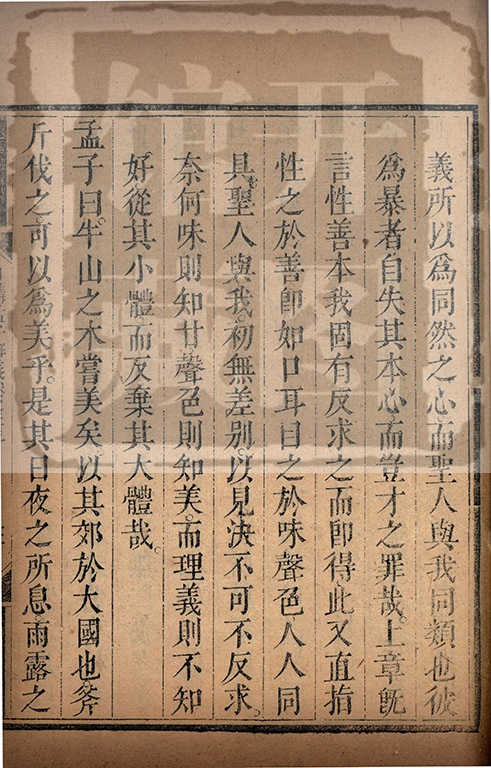 義所以爲同然之心而聖人與我同類也彼
爲暴者自失其本心而豈才之罪哉上章旣
言性善本我固有反求之而卽得此又直指
性之於善卽如口耳目之於味聲色人人同
具聖人與我初無差别以見決不可不反求
奈何味則知甘聲色則知美而理義則不知
好從其小體而反棄其大體哉
孟子曰牛山之木嘗美矣以其郊於大國也斧
斤伐之可以爲美乎是其日夜之所息雨露之